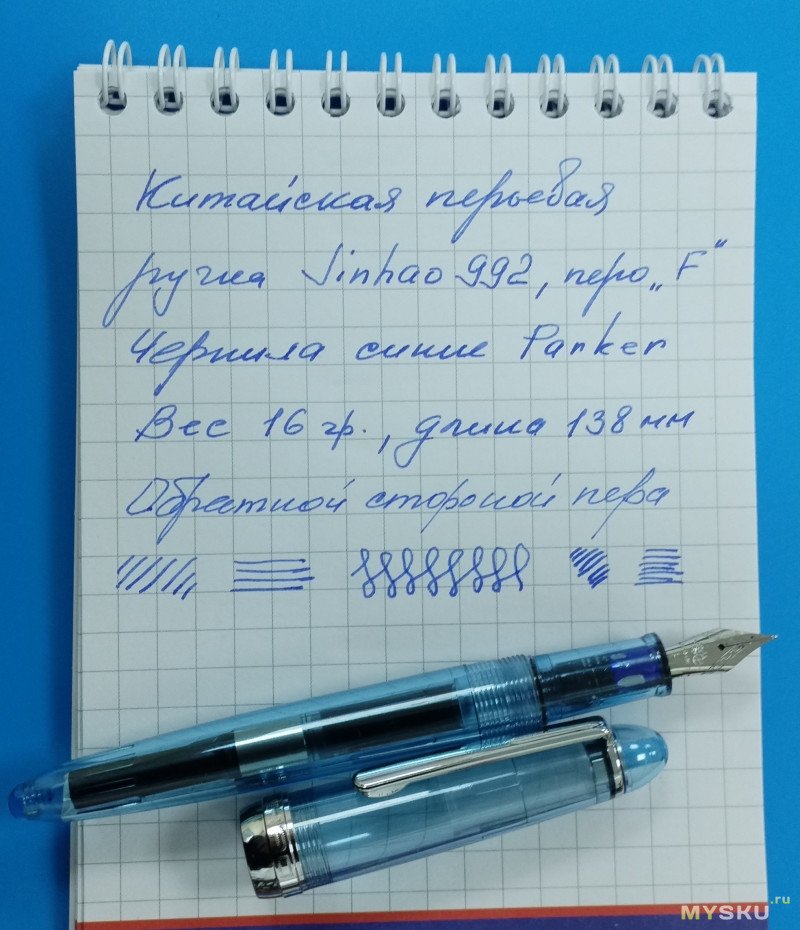 Китайская перьевая
ручка Jinhao 992, перо „F"
Чернила синие Parker
Вес 16 гр., длина 138 мм
Обратной стороной пера
MYSKU.ru